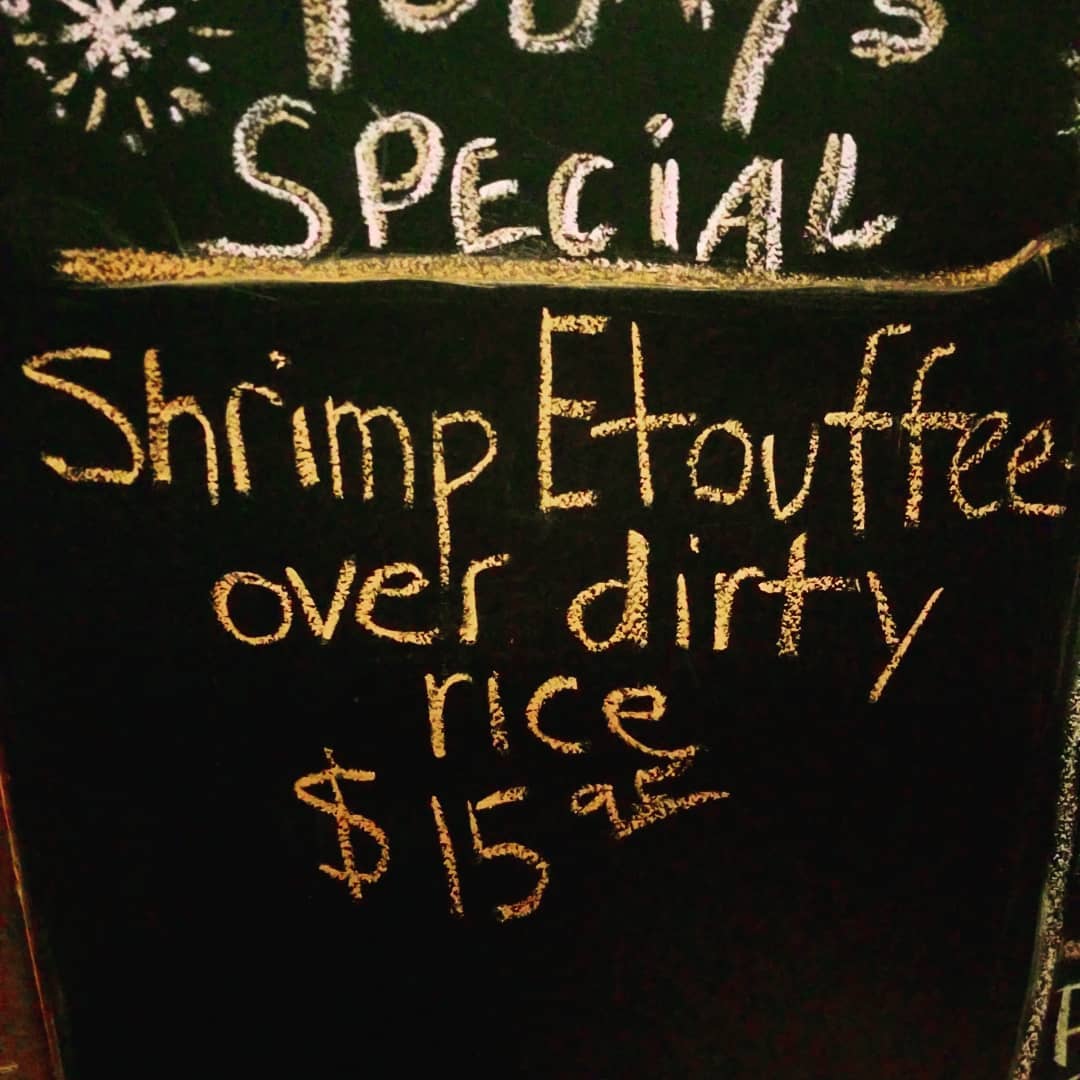 Today's
SPECiAL
Shrimp Etouffee
over dirty
rice
$ 15 95